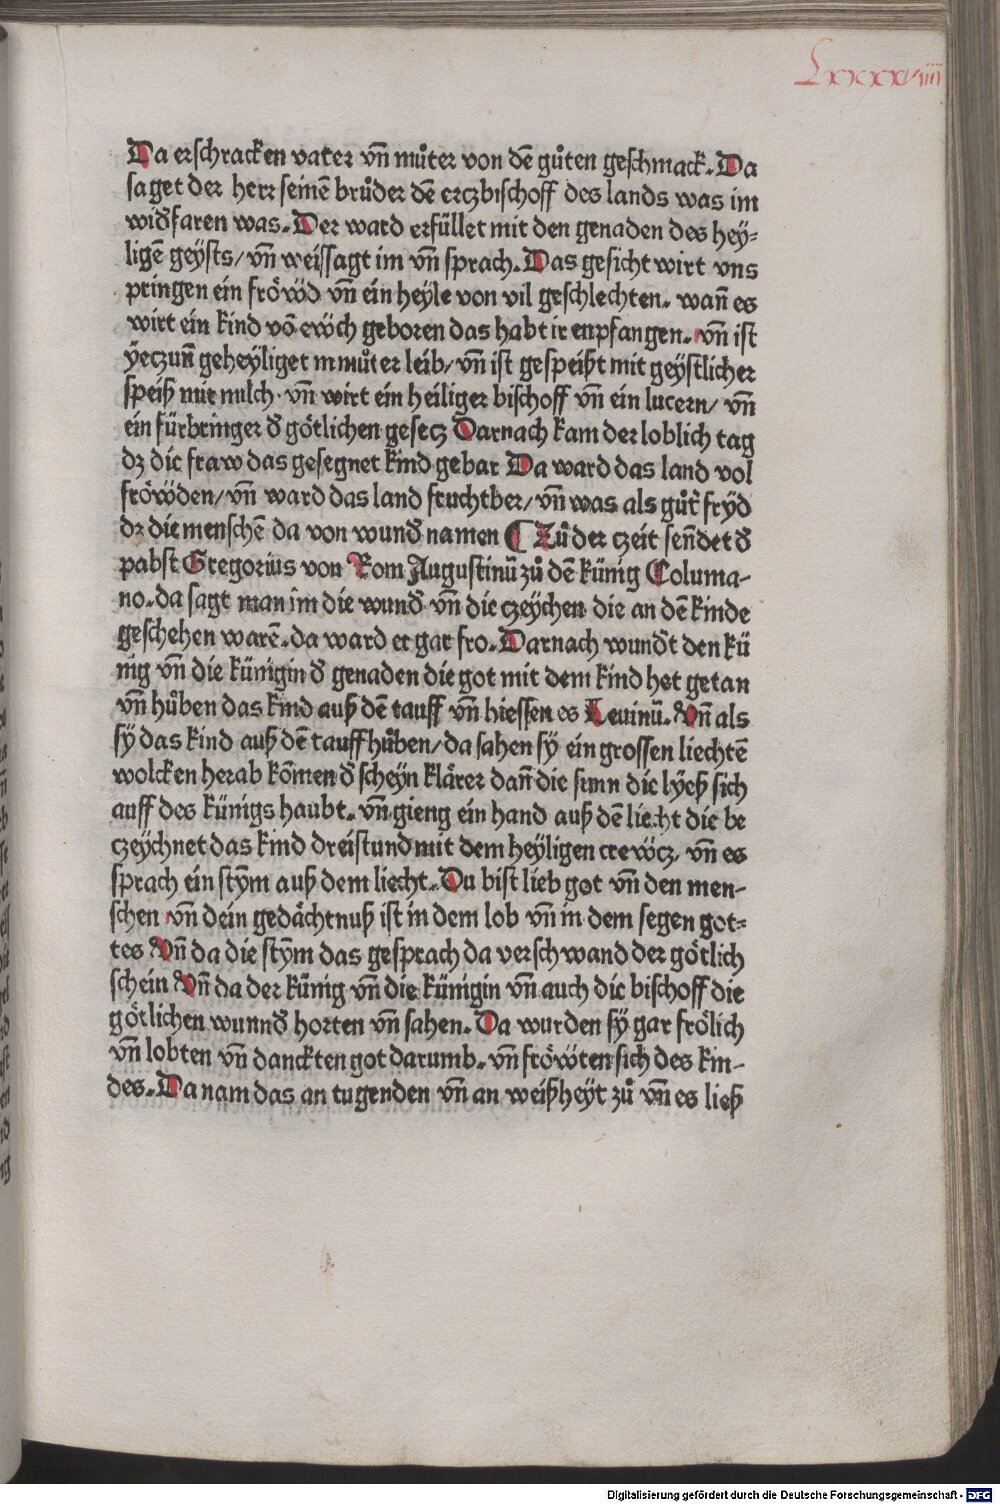 Lxxxxviiii
Da erschracken vater vn̄ můter von dē gůten geschmack. Da
saget der herr seinē brůder dē erczbischoff des lands was im
widꝰfaren was. Der ward erfüllet mit den genaden des hey⸗
ligē geÿsts/ vn̄ weissagt im vn̄ sprach. Das gesicht wirt vns
pringen ein fröẅd vn̄ ein heyle von vil geschlechten. wan̄ es
wirt ein kind vō eẅch geboren das habt ir enpfangen. vn̄ ist
ÿeczun̄ geheÿliget in můter leib/ vn̄ ist gespeißt mit geÿstlicher
speiß mit milch. vn̄ wirt ein heiliger bischoff vn̄ ein lucern/ vn̄
ein fürbringer đ götlichen gesecz Darnach kam der loblich tag
dz die fraw das gesegnet kind gebar Da ward das land vol
fröẅden/ vn̄ ward das land fruchtber/ vn̄ was als gůt̓ frÿd
dz die menschē da von wunđ namen ⸿ Zů der czeit sen̄det đ
pabst Gregorius von Rom Augustinū zů dē künig Columa-
no. da sagt man im die wunđ vn̄ die czeÿchen die an dē kinde
geschehen warē. da ward er gar fro. Darnach wundt̓ den kü
nig vn̄ die künigin đ genaden die got mit dem kind het getan
vn̄ hůben das kind auß dē tauff vn̄ hiessen es Leuinū. Vn̄ als
sÿ das kind auß dē tauff hůben/ da sahen sÿ ein grossen liechtē
wolcken herab kōmen đ scheÿn klärer dan̄ die sunn die lÿeß sich
auff des künigs haubt. vn̄ gieng ein hand auß dē liecht die be
czeÿchnet das kind dreistund mit dem heÿligen creẅcz. vn̄ es
sprach ein stÿm auß dem liecht. Du bist lieb got vn̄ den men-
schen vn̄ dein gedächtnuß ist in dem lob vn̄ in dem segen got⸗
tes Vn̄ da die stÿm das gesprach da verschwand der götlich
schein Vn̄ da der künig vn̄ die künigin vn̄ auch die bischoff die
götlichen wunnđ horten vn̄ sahen. Da wurden sÿ gar frölich
vn̄ lobten vn̄ danckten got darumb. vn̄ fröẅten sich des kin-
des. Da nam das an tugenden vn̄ an weißheÿt zů vn̄ es ließ
Digitalisierung gefördert durch die Deutsche Forschungsgemeinschaft - DFG